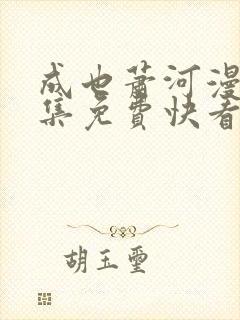 成也萧河漫
集免费快看
胡玉玺